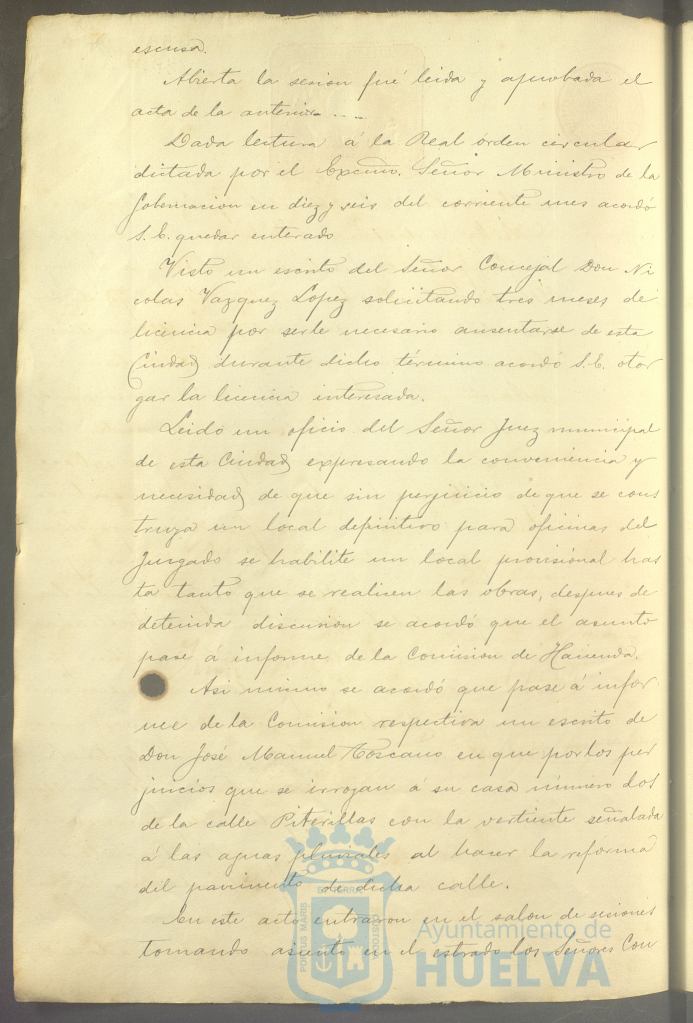 escusa.
Abierta la sesion fué leida y aprobada el
acta de la anterior....
Dada lectura á la Real orden circular
dictada por el Excmo. Señor Ministro de la
Gobernacion en diez y seis del corriente mes acordó
S. E. quedar enterado
Visto un escrito del Señor Concejal Don Ni
colas Vazquez Lopez solicitando tres meses de
licencia por serle necesario ausentarse de esta
Ciudad durante dicho término acordó S. E. otor
gar la licencia interesada.
Leido un oficio del Señor Juez municipal
de esta Ciudad expresando la conveniencia y
necesidad de que sin perjuicio de que se cons
truya un local definitivo para oficinas del
Juzgado se habilite un local provisional has
ta tanto que se realicen las obras, despues de
detenida discusion se acordó que el asunto
pase á informe de la Comision de Hacienda.
Asi mismo se acordó que pase á infor
me de la Comision respectiva un escrito de
Don José Manuel Toscano en que por los per
juicios que se irrogan á su casa número dos
de la calle Piterillas con la vertiente señalada
á las aguas pluviales al hacer la reforma
del pavimento de dicha calle.
En este acto entraron en el salon de sesiones
tomando asiento en el estrado los Señores Con
PORTUS MARIS
ET TERRAE
CUSTODIA
Ayuntamiento de
HUELVA